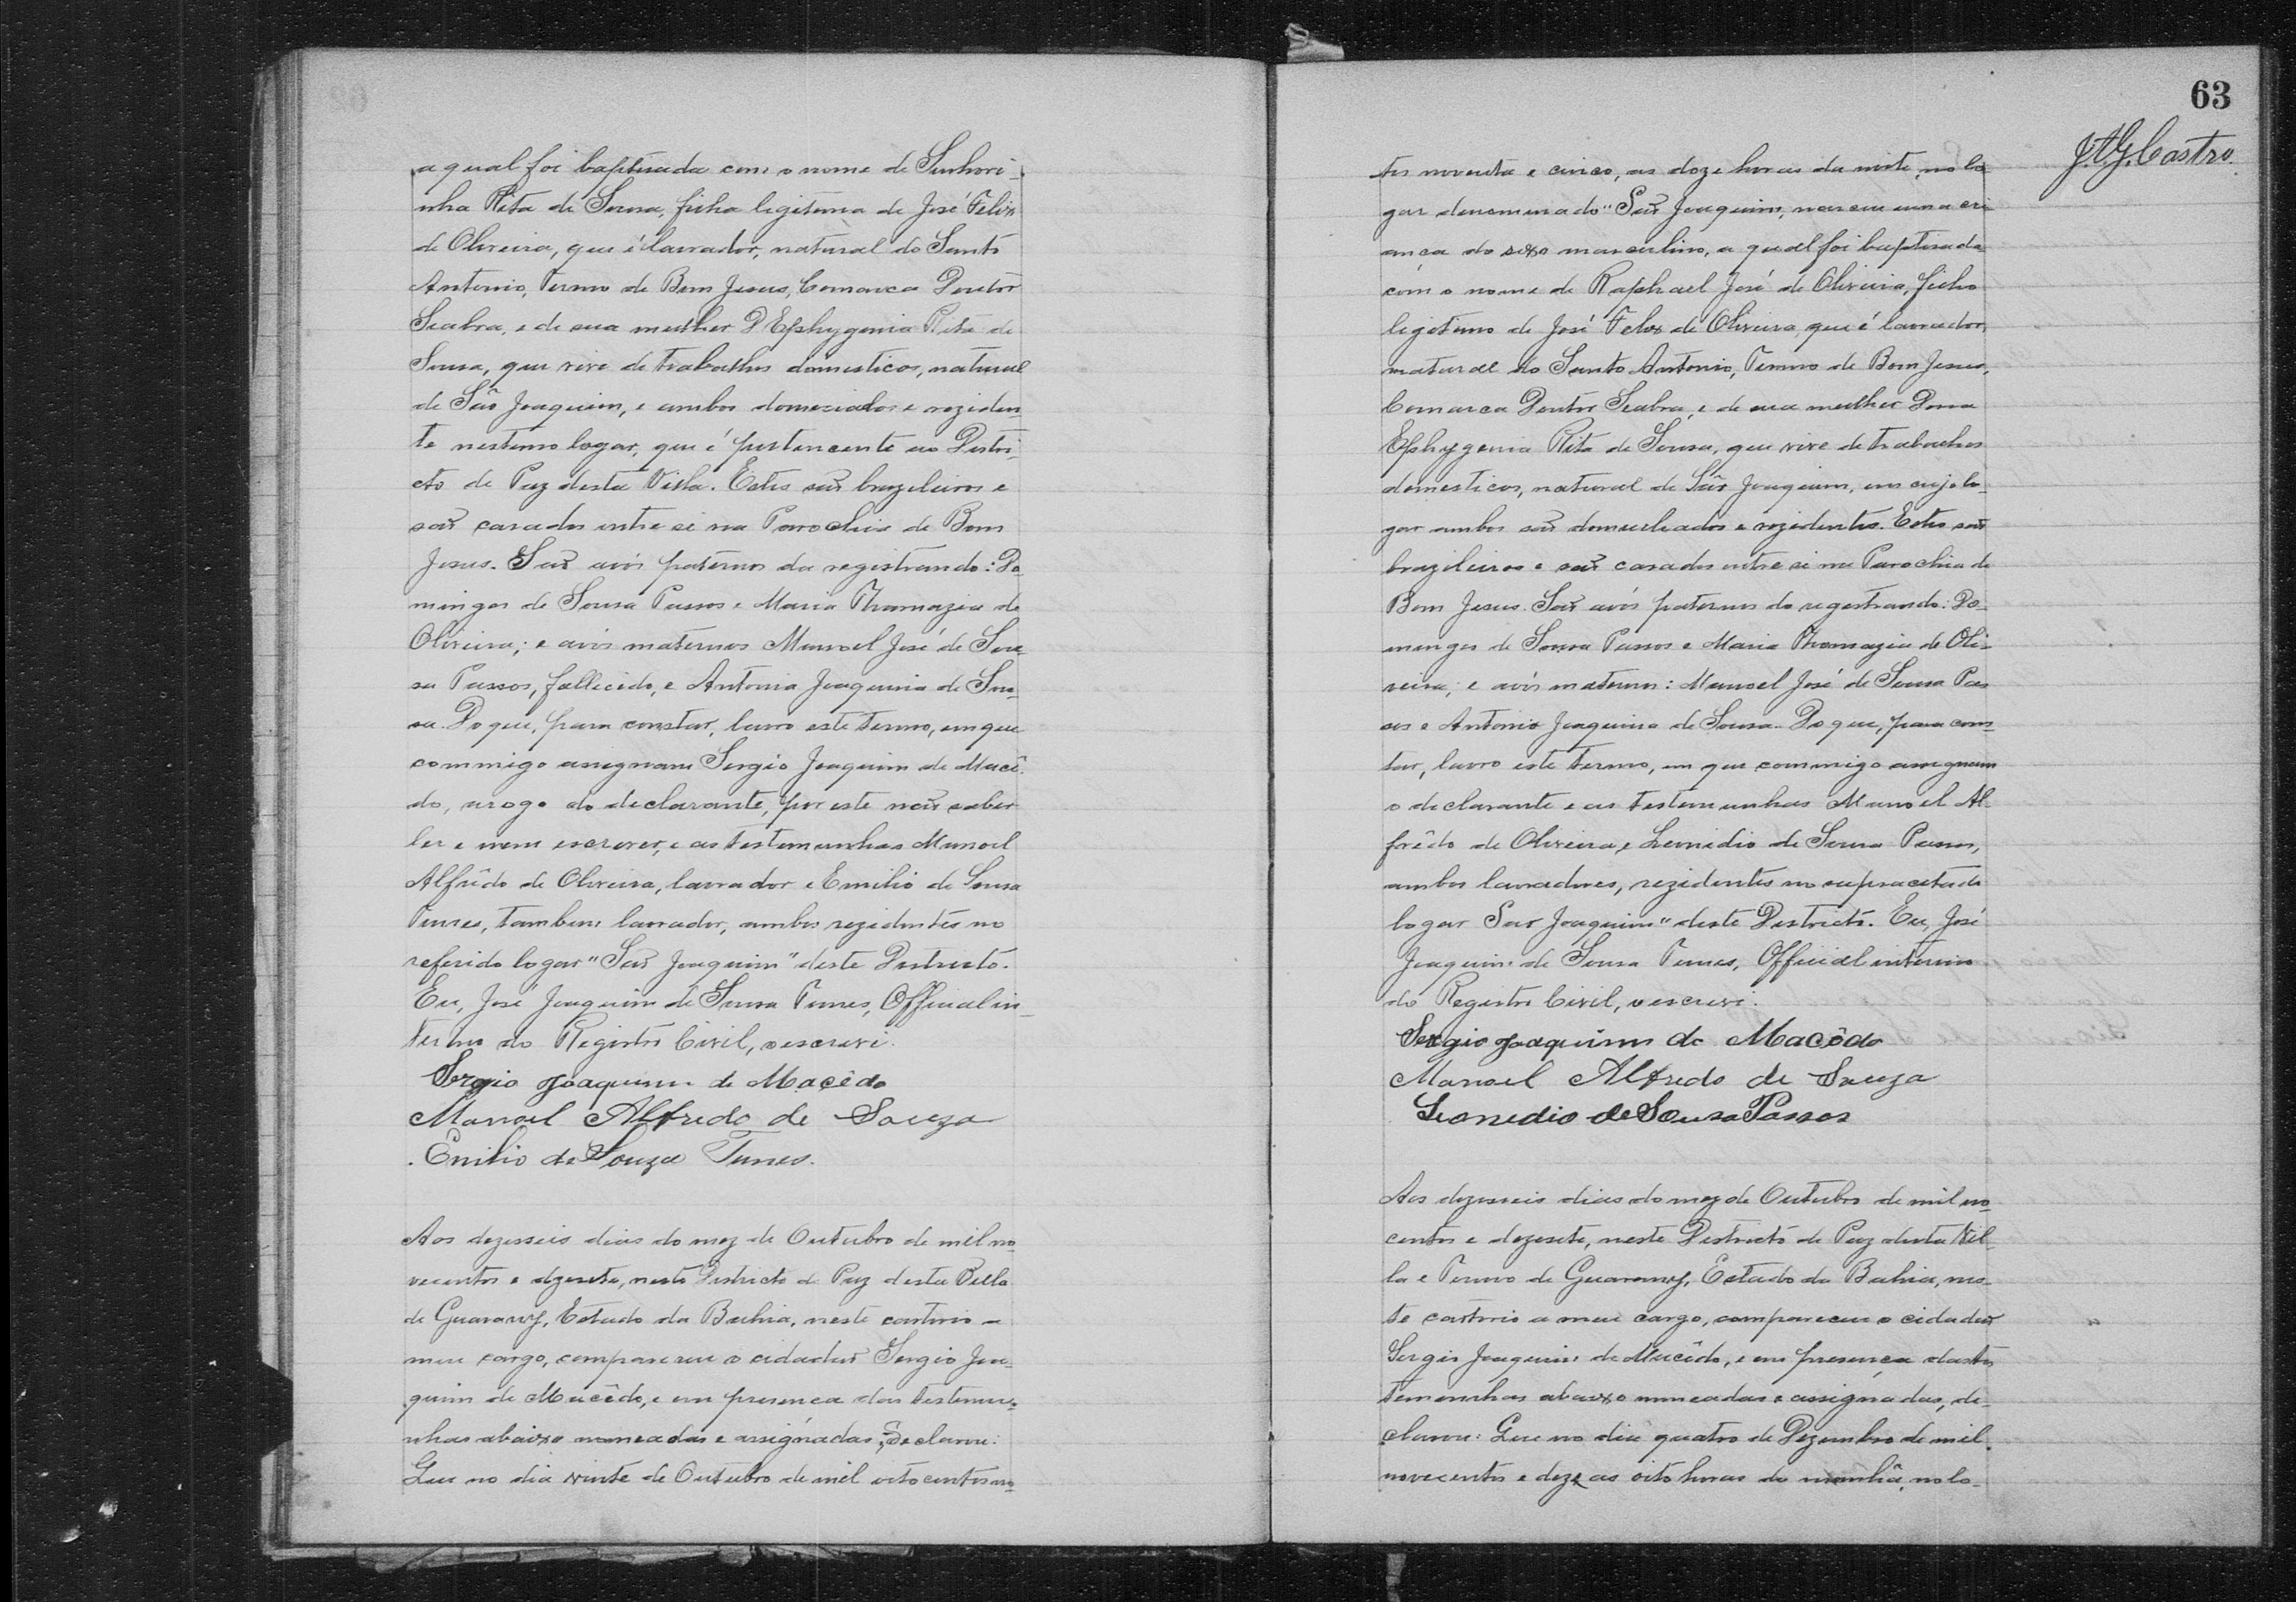 a qual foi baptisada com o nome de Senhori-
nha Rita de Sousa, filha legitima de José Felix
de Oliveira, que é lavrador, natural do Santo
Antonio, Termo de Bom Jesus, Comarca Doutor
Seabra, e de sua mulher D Ephygenia Rita de
Sousa, que vive de trabalhos domesticos, natural
de São Joaquim, e ambos domiciados e reziden-
te nestemo logar, que é pertencente ao Distri-
cto de Paz desta Villa. Estes são brazileiros e
são casados entre si na Parochia de Bom
Jesus. São avós paternos da registrando: Do-
mingos de Sousa Passos e Maria Thomazia de
Oliveira; e avós maternos Manoel José de Sou-
sa Passos, fallecido, e Antonia Joaquina de Sou-
sa. Do que, para constar, lavro este termo, em que
commigo assignam Sergio Joaquim de Macê-
do, arogo do declarante, por este não saber
ler e nem escrever, e as testemunhas Manoel
Alfrêdo de Oliveira, lavrador e Emilio de Sousa
Tunes, tambem lavrador, ambos rezidentes no
referido logar "São Joaquim" deste Districto.
Eu, José Joaquim de Sousa Tunes, Official in-
terino do Registro Civil, o escrevi.
Sergio Joaquim de Macêdo
Manoel Alfredo de Souza
Emilio de Souza Tunes.
Aos dezesseis dias do mez de Outubro de mil no-
vecentos e dezesete, neste Districto de Paz desta Villa
de Guarany, Estado da Bahia, neste cartorio a
meu cargo, compareceu o cidadão Sergio Joa-
quim de Macêdo, e em presença das testemu-
nhas abaixo nomeadas e assignadas, declarou:
Que no dia vinte de Outubro de mil oitocentos no-
63
J.A.G. Castro.
tos noventa e cinco, as doze horas da noite, no lo-
gar denominado "São Joaquim, nasceu uma cri-
ança do sexo masculino, a qual foi baptisada
com o nome de Raphael José de Oliveira, filho
legitimo de José Felix de Oliveira que é lavrador,
natural do Santo Antonio, Termo de Bom Jesus,
Comarca Doutor Seabra, e de sua mulher Dona
Ephygenia Rita de Sousa, que vive de trabalhos
domesticos, natural de São Joaquim, em cujo lo-
gar ambos são domiciliados e rezidentes. Estes são
brazileiros e são casados entre si na Parochia de
Bom Jesus. São avós paternos do registrando: Do-
mingos de Sousa Passos e Maria Thomazia de Oli-
veira; e avós maternos: Manoel José de Sousa Pas-
sos e Antonia Joaquina de Sousa. Do que, para cons-
tar, lavro este termo, em que commigo assignam
o declarante e as testemunhas Manoel Al-
frêdo de Oliveira e Leonidio de Sousa Passos,
ambos lavradores, rezidentes no supracitado
logar São Joaquim" deste Districto. Eu, José
Joaquim de Sousa Tunes, Official interino
do Registro Civil, o escrevi.
Sergio Joaquim de Macêdo
Manoel Alfredo de Souza
Leonedio de Sousa Passos
Aos dezesseis dias do mez de Outubro de mil no-
centos e dezesete, neste Districto de Paz desta Vil-
la e Termo de Guarany, Estado da Bahia, nes-
te cartorio a meu cargo, compareceu o cidadão
Sergio Joaquim de Macêdo, e em presença das tes-
temunhas abaixo nomeadas e assignadas, de-
clarou: Que no dia quatro de Dezembro de mil
novecentos e doze as oito horas da manhã, no lo-